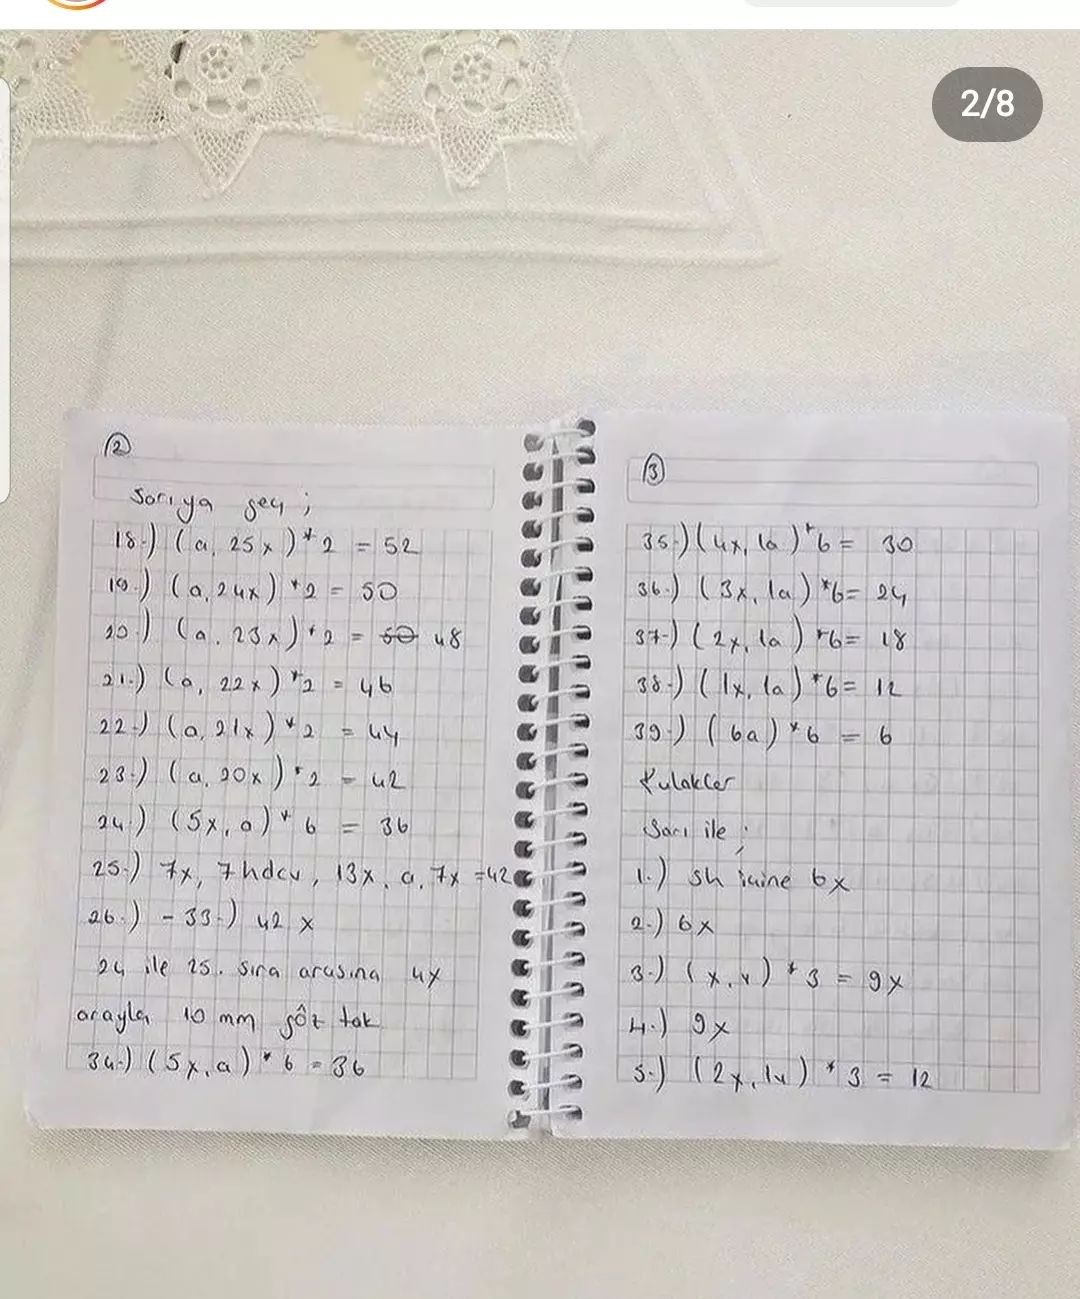 2/8
2
Sarıya geç ;
18-) (a, 25x) * 2 = 52
19-) (a, 24x) * 2 = 50
20-) (a, 23x) * 2 = 50 48
21-) (a, 22x) * 2 = 46
22-) (a, 21x) * 2 = 44
23-) (a, 20x) * 2 = 42
24-) (5x, a) * 6 = 36
25-) 7x, 7hdcv, 13x, a, 7x =42
26-) - 33-) 42 x
24 ile 25. sıra arasına 4x
arayla 10 mm göz tak
34-) (5x, a) * 6 = 36
3
35-) (4x, 1a) * 6 = 30
36-) (3x, 1a) *6= 24
37-) (2x, 1a) *6= 18
38-) (1x, 1a) *6= 12
39-) (6a) *6 = 6
Kulaklar
Sarı ile ;
1-) sh içine 6x
2-) 6x
3-) (x, v) * 3 = 9x
4-) 9x
5-) (2x, 1v) * 3 = 12